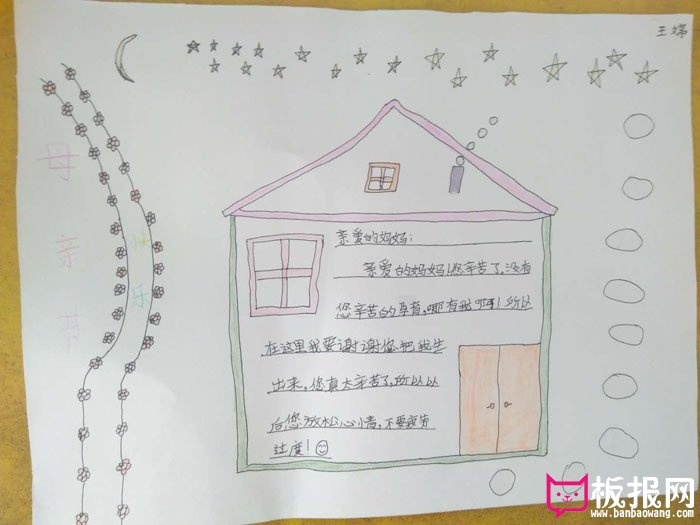 王婷
母亲节
快乐
亲爱的妈妈：
亲爱的妈妈！您辛苦了，没有
您辛苦的孕育，哪有我呀！所以
在这里我要谢谢您把我生
出来，您真太辛苦了，所以以
后您放松心情，不要疲劳
过度！
板报网
www.banbaowang.com